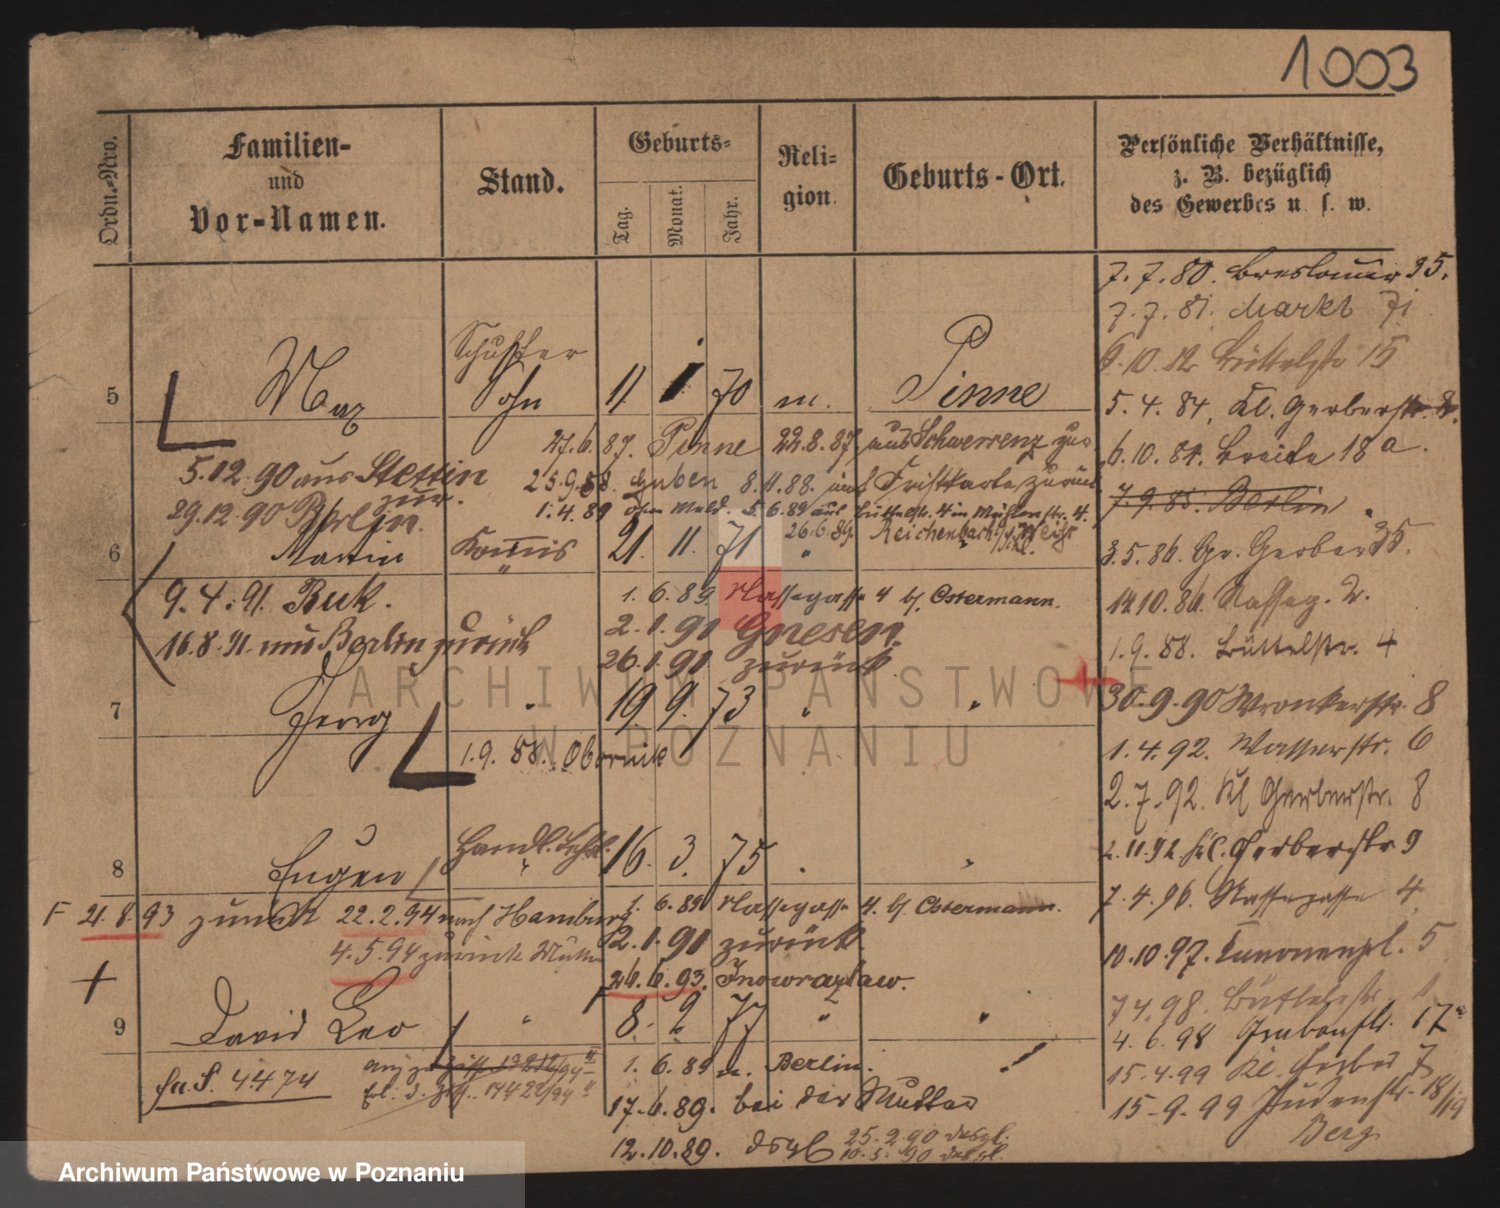 1003
Ordn.-Nro.
Familien-
und
Vor-Namen.
Stand.
Geburts-
Tag.
Monat.
Jahr.
Reli-
gion.
Geburts-Ort.
Persönliche Verhältnisse,
z. B. bezüglich
des Gewerbes u. s. w.
7.7.80. Breslauer 35.
7.7.81. Markt 71
5.4.84. Kl. Gerberstr. 8.
6.10.84. Breite 18a.
7.9.85. Berlin
3.5.86. Gr. Gerber 35.
14.10.86. Nasseg. 2.
1.9.88. Büttelstr. 4
30.9.90 Wronkerstr. 8
1.4.92. Wasserstr. 6
2.7.92. Kl Gerberstr. 8
2.11.92 Kl. Gerberstr 9
7.4.96. Nassegasse 4
10.10.97. Kanonenpl. 5
7 4.98. Büttelstr
4.6.98
15.4.99 Kl. Gerber 7
15.9.99 Judenstr. 18/19
Berg
5 Max Schuster Sohn 11 1 70 m. Pinne
27.6.87. Pinne 22.8.87, aus Schwersenz zur
5.12.90 aus Stettin zur.
25.9.88. Guben 8.11.88.
29.12.90 Berlin.
1.4.89
5.6.89 aus Büttelstr. 4 in Mühlenstr. 4.
26.6.89. Reichenbach
6 Martin Kommis 21. 11. 71 "
9.4.91. Buk.
1.6.89 Nassegasse 4 b/. Ostermann.
16.8.91. aus Berlin zurück
2.1.90 Gnesen.
26.1.90 zurück
7 Georg " 19. 9. 73 " "
1.9.88. Obornik
8 Eugen Handl. Lehrl. " 16. 3. 75
F 21.8.93 zurück 22.2.94 nach Hamburg
1.6.89 Nassegasse 4. b/. Ostermann.
2.1.90 zurück.
4.5.94 zurück Mutter
26.6.93. Inowrazlaw.
9 David Leo " 8. 9 77 " "
1.6.89 n. Berlin.
Fa.S. 4474
17.6.89. bei der Mutter
12.10.89. dsgl
25.2.90 desgl.
10.5.90 desgl.
ARCHIWUM PAŃSTWOWE
W POZNANIU
Archiwum Państwowe w Poznaniu